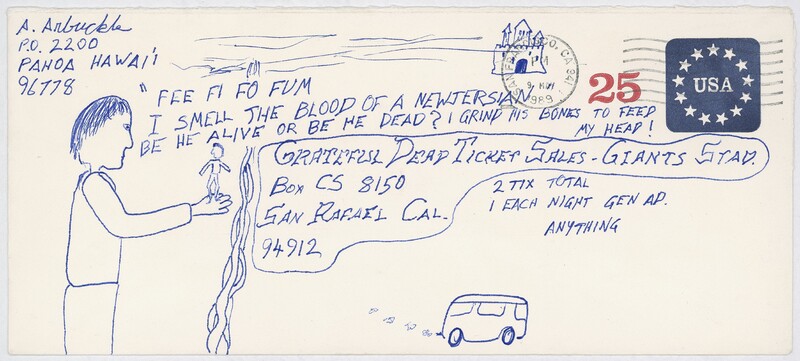 A. Arbuckle
P.O. 2200
PAHOA HAWAI'I
96778
"FEE FI FO FUM
I SMELL THE BLOOD OF A NEWJERSIAN
BE HE ALIVE OR BE HE DEAD? I GRIND HIS BONES TO FEED
MY HEAD!
GRATEFUL DEAD TICKET SALES - GIANTS STAD.
BOX CS 8150
SAN RAFAEL CAL.
94912
2 TIX TOTAL
1 EACH NIGHT GEN AD.
ANYTHING
SAN FRANCISCO, CA 941
PM
1989
25
USA